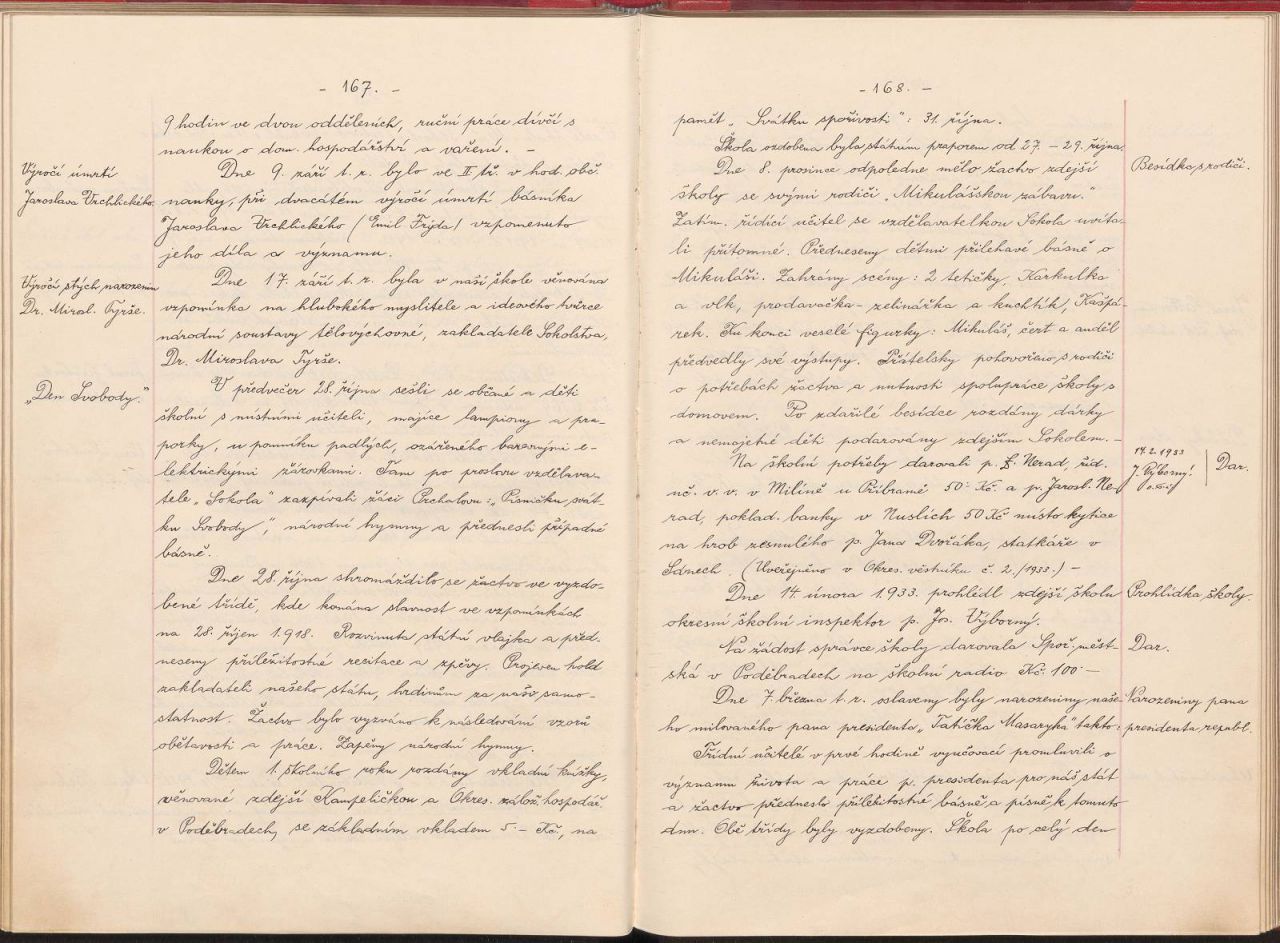 - 167. -
9 hodin ve dvou odděleních, ruční práce dívčí s
naukou o dom. hospodářství a vaření. -
Výročí úmrtí
Jaroslava Vrchlického.
Dne 9. září t. r. bylo ve II tř. v hod. obč.
nauky, při dvacátém výročí úmrtí básníka
Jaroslava Vrchlického (Emil Frýda) vzpomenuto
jeho díla a významu.
Výročí stých narozenin
Dr. Mirosl. Tyrše.
Dne 17. září t. r. byla v naší škole věnována
vzpomínka na hlubokého myslitele a ideového tvůrce
národní soustavy tělovýchovné, zakladatele Sokolstva,
Dr. Miroslava Tyrše.
„Den Svobody."
V předvečer 28. října sešli se občané a děti
školní s místními učiteli, majíce lampiony a pra-
porky, u pomníku padlých, ozářeného barevnými e-
lektrickými žárovkami. Tam po proslovu vzdělava-
tele „Sokola" zazpívali žáci Prchalovu: „Písničku svát-
ku Svobody", národní hymny a přednesli případné
básně.
Dne 28. října shromáždilo se žactvo ve vyzdo-
bené třídě, kde konána slavnost ve vzpomínkách
na 28. říjen 1.918. Rozvinuta státní vlajka a před-
neseny příležitostné recitace a zpěvy. Projeven hold
zakladateli našeho státu, hrdinům za naši samo-
statnost. Žactvo bylo vyzváno k následování vzorů
obětavosti a práce. Zapěny národní hymny.
Dětem 1. školního roku rozdány vkladní knížky,
věnované zdejší Kampeličkou a Okres. zálož. hospodář.
v Poděbradech, se základním vkladem 5.- Kč, na
- 168. -
paměť „Svátku spořivosti": 31. října.
Škola ozdobena byla státním praporem od 27. - 29. října.
Besídka s rodiči.
Dne 8. prosince odpoledne mělo žactvo zdejší
školy se svými rodiči „Mikulášskou zábavu."
Zatím. řídící učitel se vzdělavatelkou Sokola uvíta-
li přítomné. Předneseny dětmi přiléhavé básně o
Mikuláši. Zahrány scény: 2 tetičky, Karkulka
a vlk, prodavačka-zelinářka a kuchtík, Kašpá-
rek. Ku konci veselé figurky: Mikuláš, čert a anděl
předvedly své výstupy. Přátelsky pohovořeno s rodiči
o potřebách žactva a nutnosti spolupráce školy s
domovem. Po zdařilé besídce rozdány dárky
a nemajetné děti podarovány zdejším Sokolem. -
14.2.1933
J. Výborný
Dar.
Na školní potřeby darovali p. F. Nerad, říd.
uč. v. v. v Milíně u Příbramě 50.- Kč. a p. Jarosl. Ne-
rad, poklad. banky v Nuslích 50 Kč místo kytice
na hrob zesnulého p. Jana Dvořáka, statkáře v
Sánech. (Uveřejněno v Okres. věstníku č. 2./1933.) -
Prohlídka školy.
Dne 14. února 1.933. prohlédl zdejší školu
okresní školní inspektor p. Jos. Výborný.
Dar.
Na žádost správce školy darovala Spoř. měst-
ská v Poděbradech na školní radio Kč. 100.-
Narozeniny pana
presidenta republ.
Dne 7. března t. r. oslaveny byly narozeniny naše-
ho milovaného pana presidenta „Tatíčka Masaryka" takto:
Třídní učitelé v prvé hodině vyučovací promluvili o
významu života a práce p. presidenta pro náš stát
a žactvo předneslo příležitostné básně a písně k tomuto
dnu. Obě třídy byly vyzdobeny. Škola po celý den